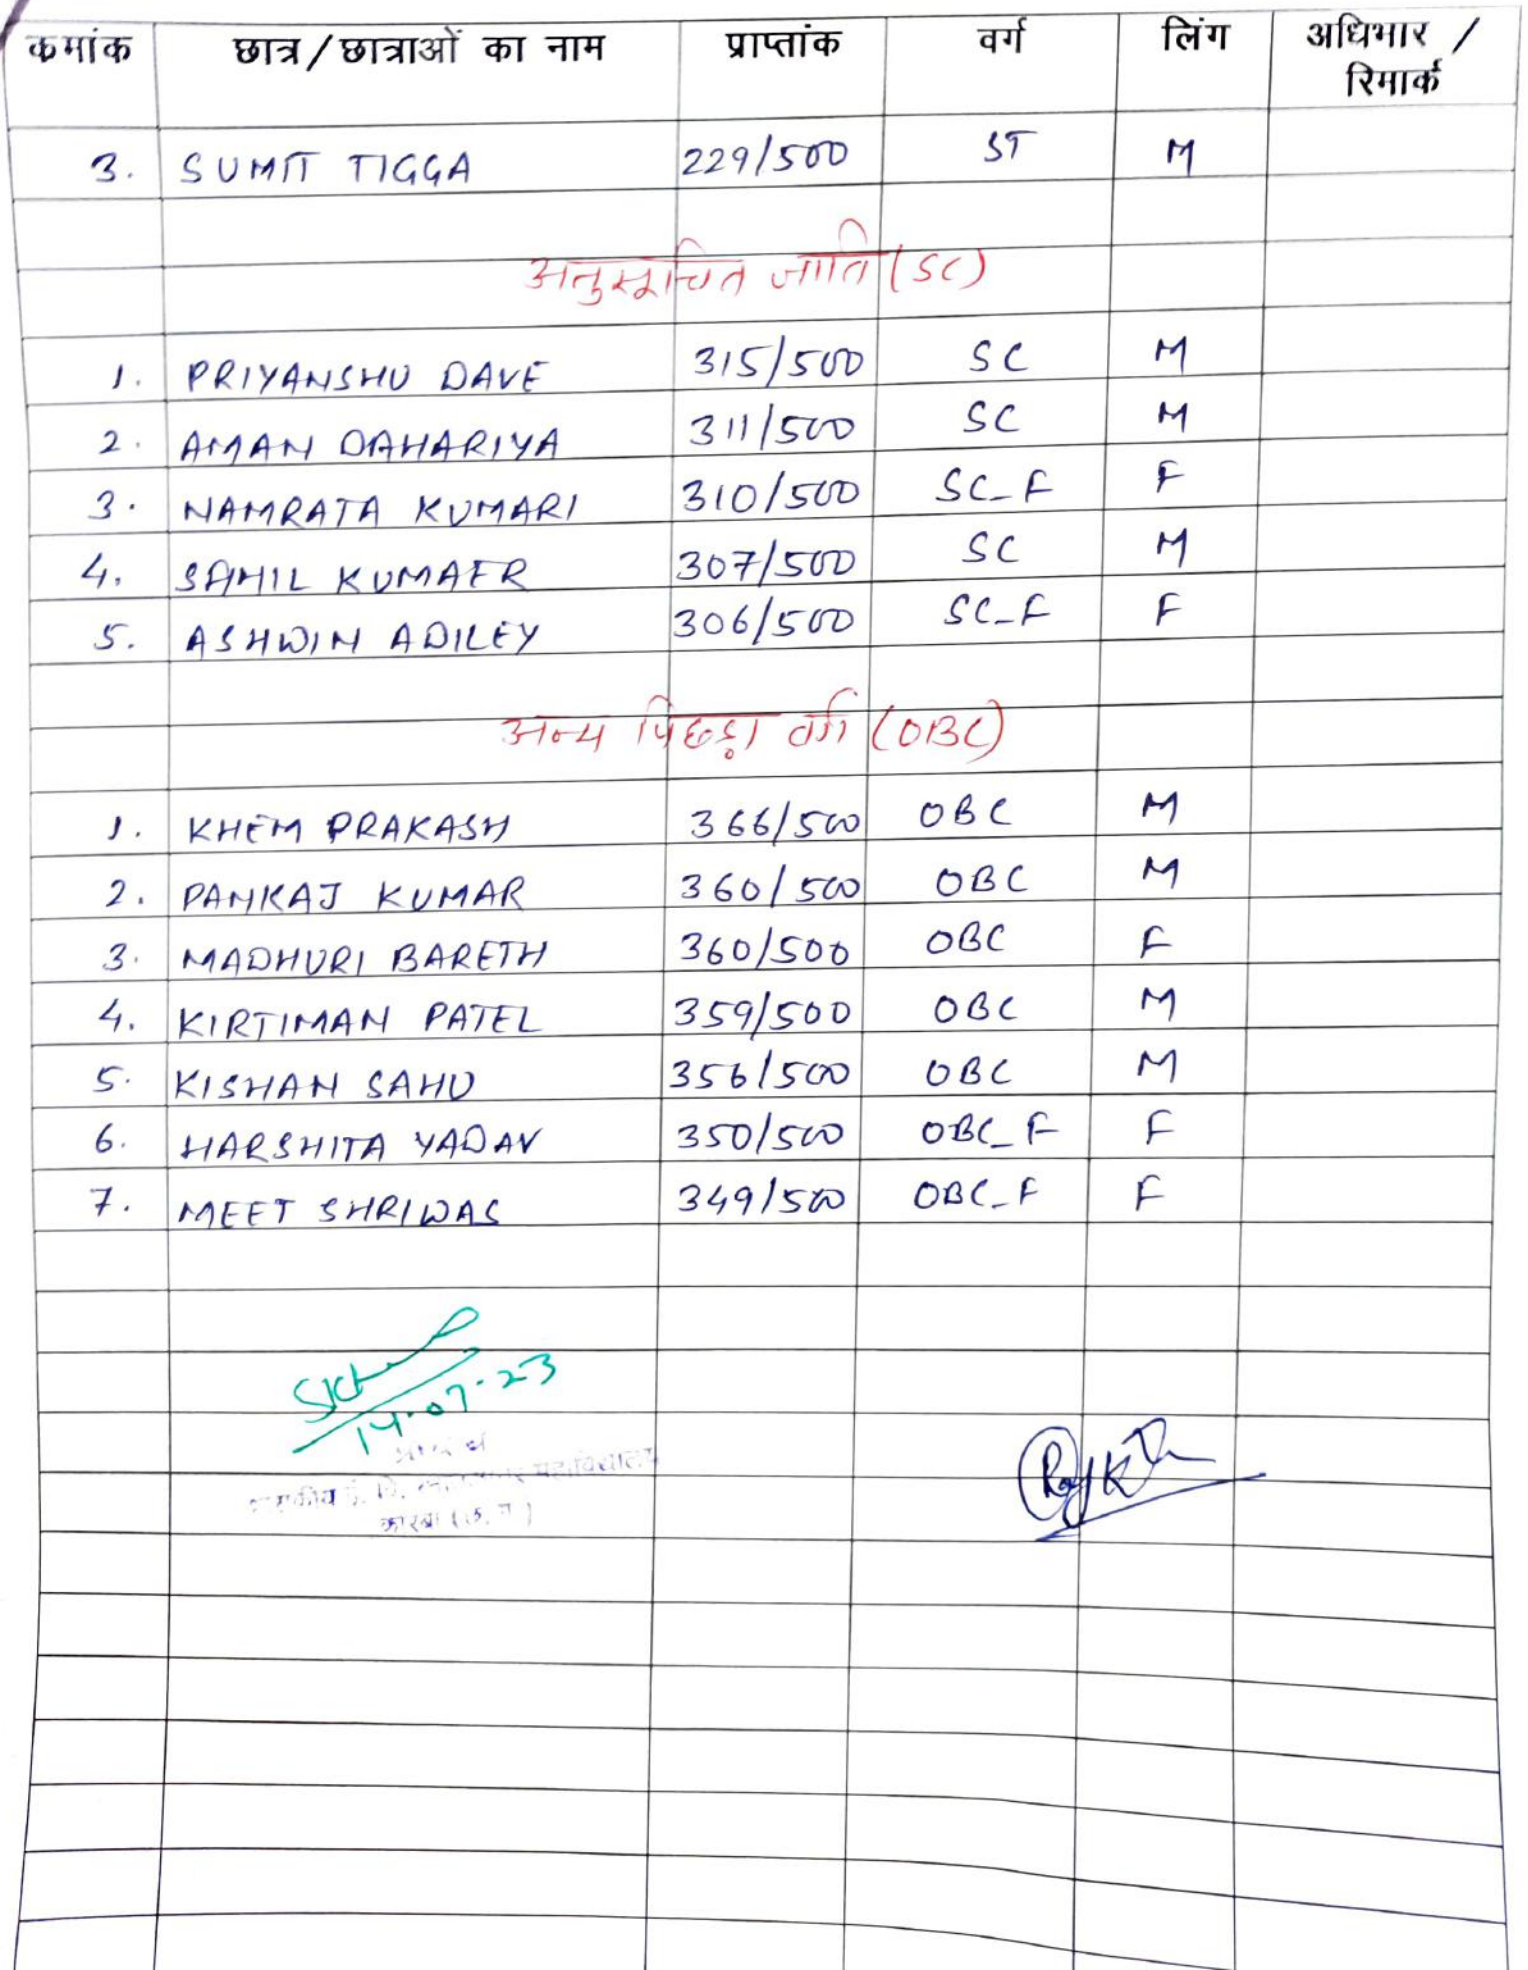 कमांक छात्र/छात्राओं का नाम प्राप्तांक वर्ग लिंग अधिभार /
रिमार्क
3. SUMIT TIGGA 229/500 ST M
अनुसूचित जाति (SC)
1. PRIYANSHU DAVE 315/500 SC M
2. AMAN DAHARIYA 311/500 SC M
3. NAMRATA KUMARI 310/500 SC_F F
4. SAHIL KUMAER 307/500 SC M
5. ASHWIN ADILEY 306/500 SC_F F
अन्य पिछड़ा वर्ग (OBC)
1. KHEM PRAKASH 366/500 OBC M
2. PANKAJ KUMAR 360/500 OBC M
3. MADHURI BARETH 360/500 OBC F
4. KIRTIMAN PATEL 359/500 OBC M
5. KISHAN SAHU 356/500 OBC M
6. HARSHITA YADAV 350/500 OBC_F F
7. MEET SHRIWAS 349/500 OBC_F F
14.07.23
महाविद्यालय
कोरबा (छ.ग.)